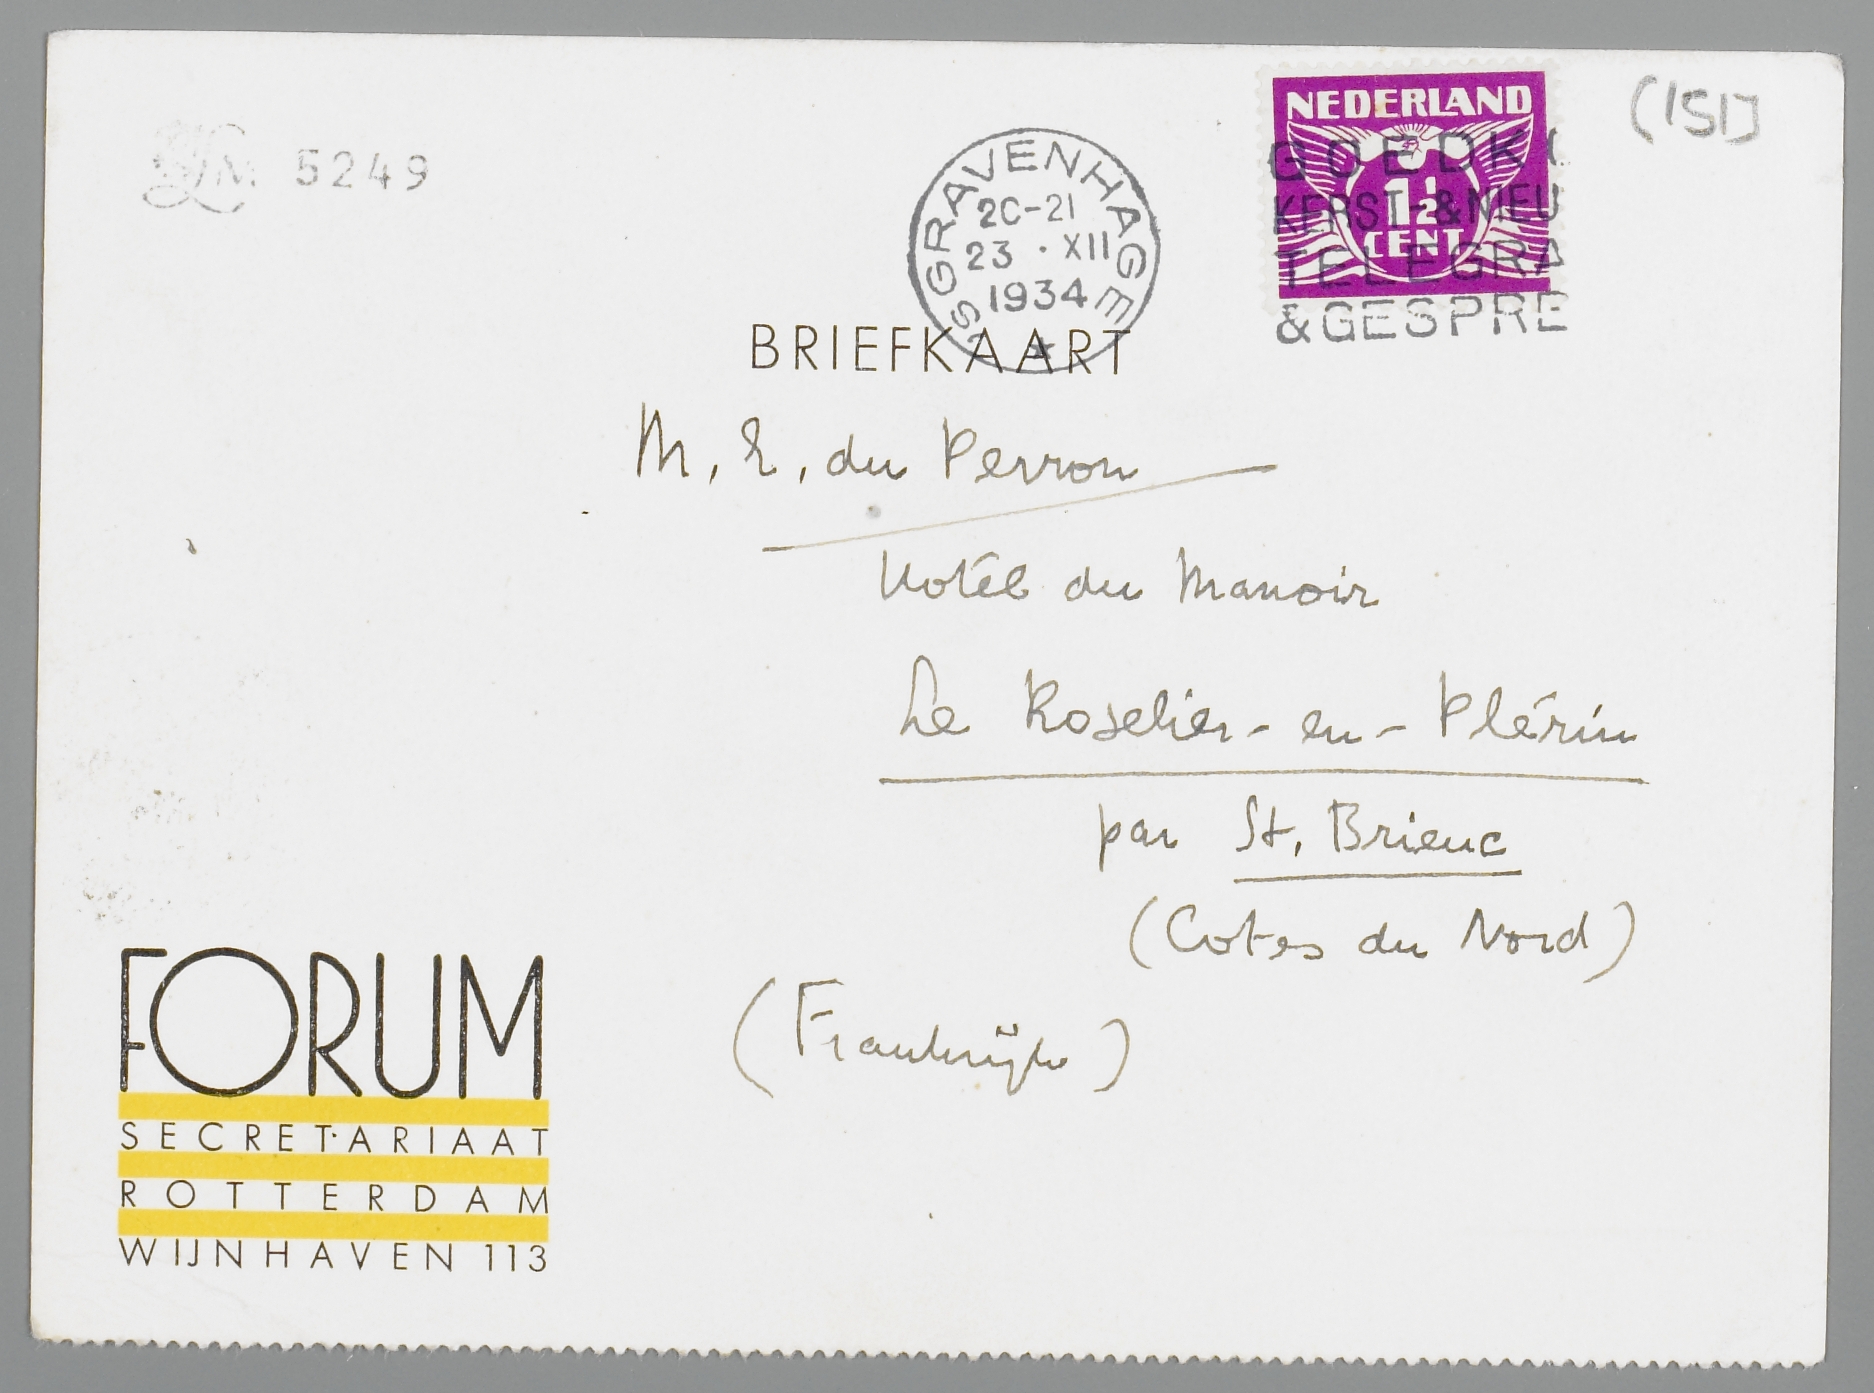 LM 5249
(151)
NEDERLAND
1½
CENT
'SGRAVENHAGE
20-21
23 · XII
1934
GOEDK
KERST- & NIEU
TELEGRA
& GESPRE
BRIEFKAART
M. E. du Perron
Hotel du Manoir
Le Roselier-en-Plérin
par St. Brieuc
(Cotes du Nord)
(Frankrijk)
FORUM
SECRETARIAAT
ROTTERDAM
WIJNHAVEN 113